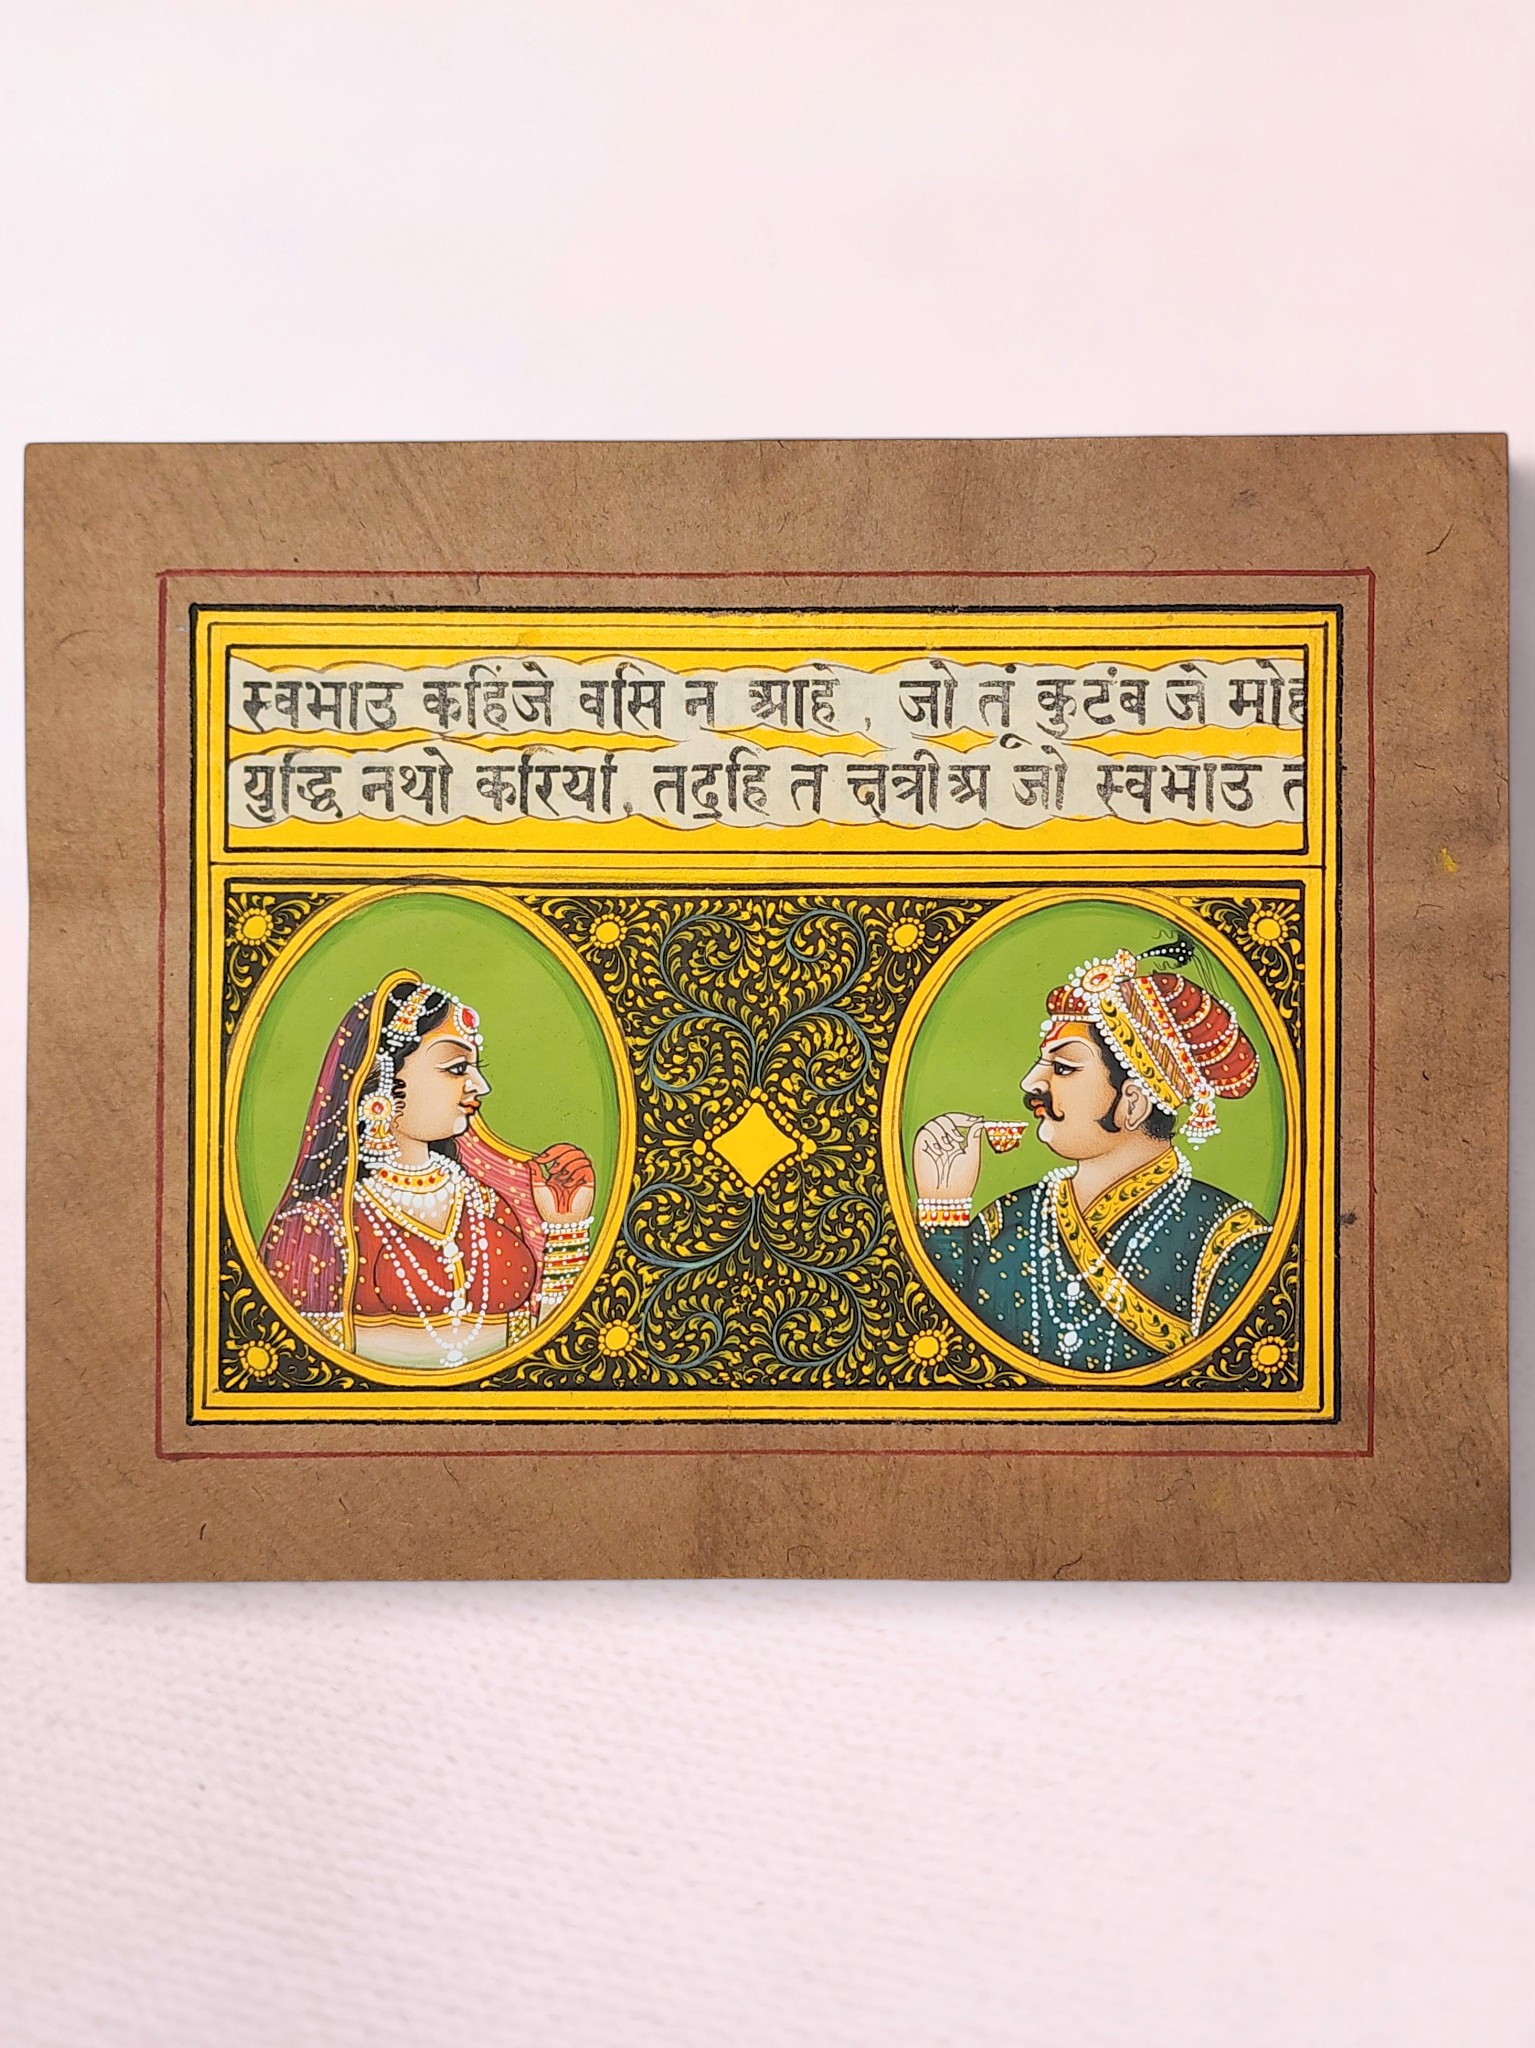 स्वभाउ कहिंजे वसि न आहे, जो तूं कुटंब जे
युद्धि नथो करियां, तदहि त क्षत्रीअ जो स्वभाउ